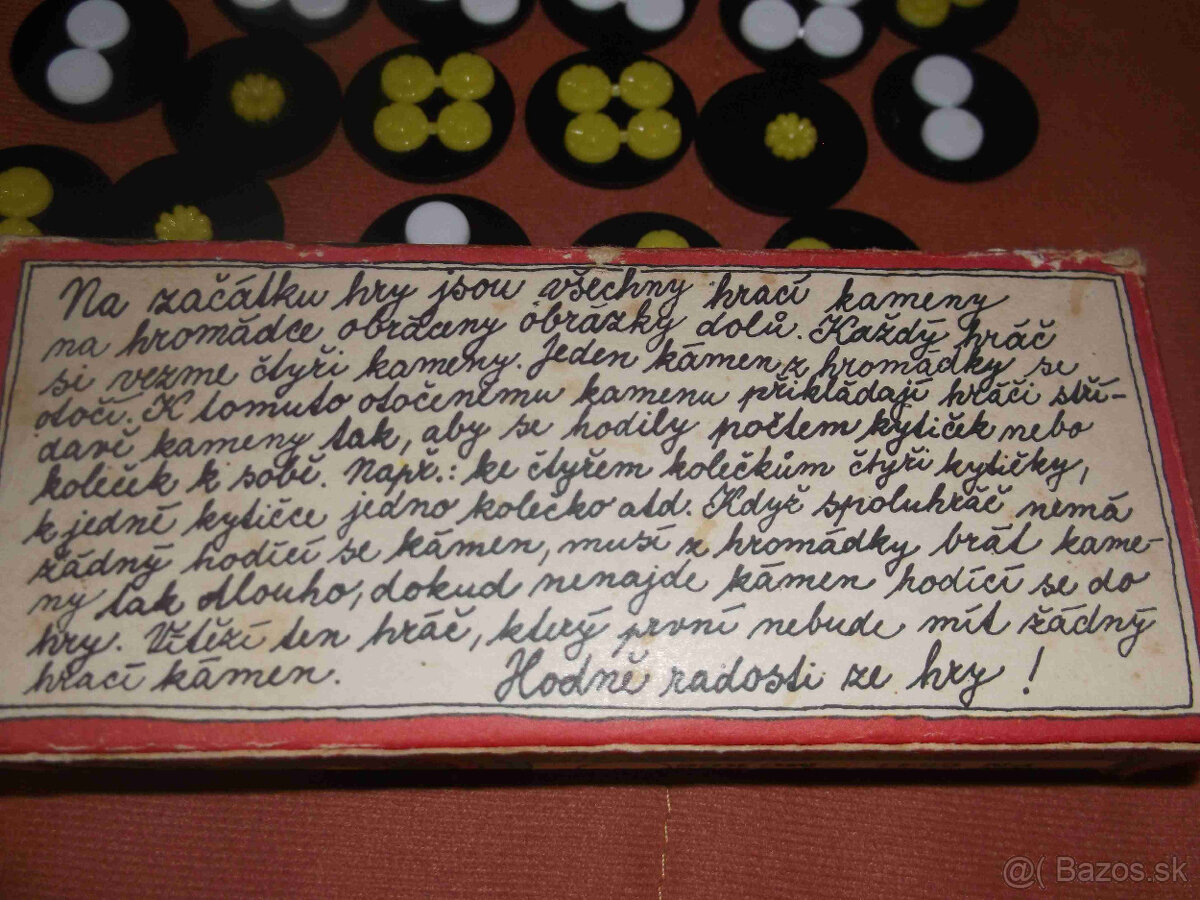 Na začátku hry jsou všechny hrací kameny
na hromádce obráceny obrázky dolů. Každý hráč
si vezme čtyři kameny. Jeden kámen z hromádky se
otočí. K tomuto otočenému kamenu přikládají hráči stří-
davě kameny tak, aby se hodily počtem kytiček nebo
koleček k sobě. Např.: ke čtyřem kolečkům čtyři kytičky,
k jedné kytičce jedno kolečko atd. Když spoluhráč nemá
žádný hodící se kámen, musí z hromádky brát kame-
ny tak dlouho, dokud nenajde kámen hodící se do
hry. Vítězí ten hráč, který první nebude mít žádný
hrací kámen. Hodně radosti ze hry!
@( Bazos.sk